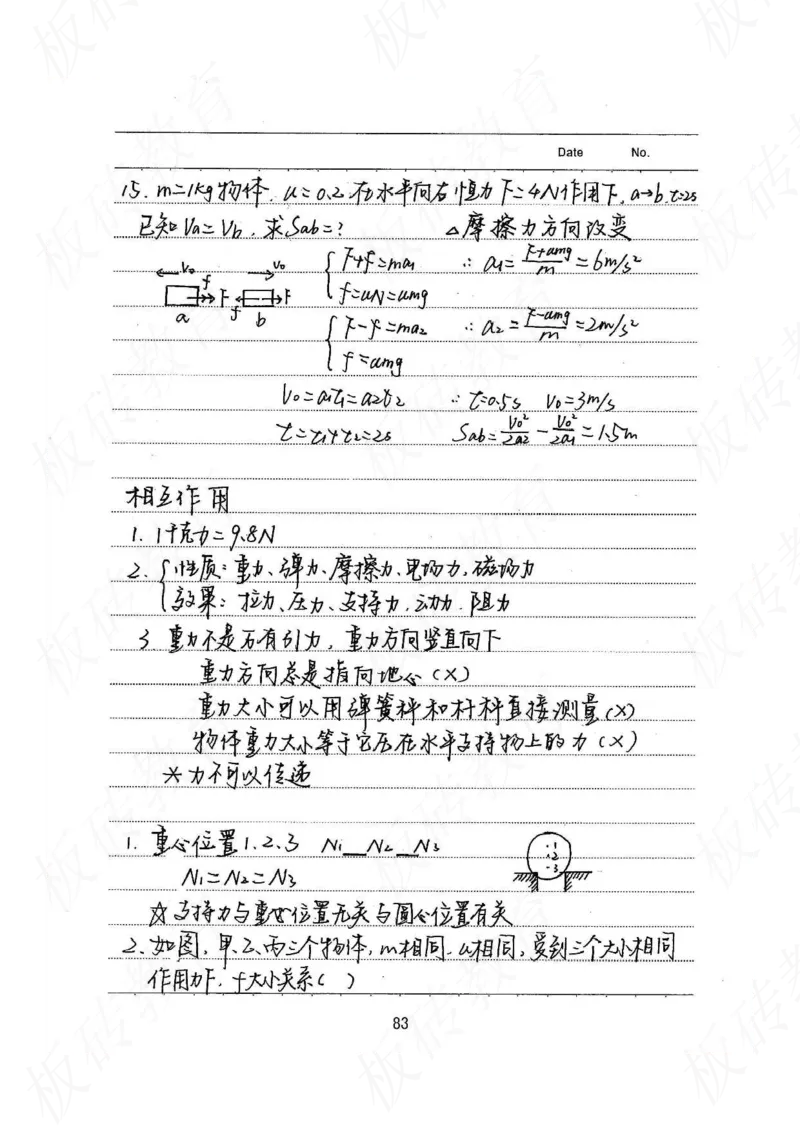 Date No.
15. m=1kg物体. u=0.2.在水平向右恒力F=4N作用下, a→b.t=2s
已知Va=Vb. 求Sab=? △摩擦力方向改变
V0 V0 { F+f=ma1 ∴ a1=(F+umg)/m=6m/s²
f F f F f=uN=umg
a b { F-f=ma2 ∴ a2=(F-umg)/m=2m/s²
f=umg
V0=a1t1=a2t2 ∴ t=0.5s V0=3m/s
t=t1+t2=2s Sab=V0²/2a2 - V0²/2a1=1.5m
相互作用
1. 1千克力=9.8N
2. { 性质: 重力、弹力、摩擦力、电场力, 磁场力
效果: 拉力、压力、支持力, 动力. 阻力
3 重力不是万有引力, 重力方向竖直向下
重力方向总是指向地心 (X)
重力大小可以用弹簧秤和杆秤直接测量(X)
物体重力大小等于它压在水平支持物上的力 (X)
* 力不可以传递
1. 重心位置1.2.3 N1__N2__N3 ·1 ·2 ·3
N1=N2=N3
☆支持力与重心位置无关与圆心位置有关
2、如图, 甲、乙、丙三个物体, m相同. u相同, 受到三个大小相同
作用力F. f大小关系( )
83
板砖教育